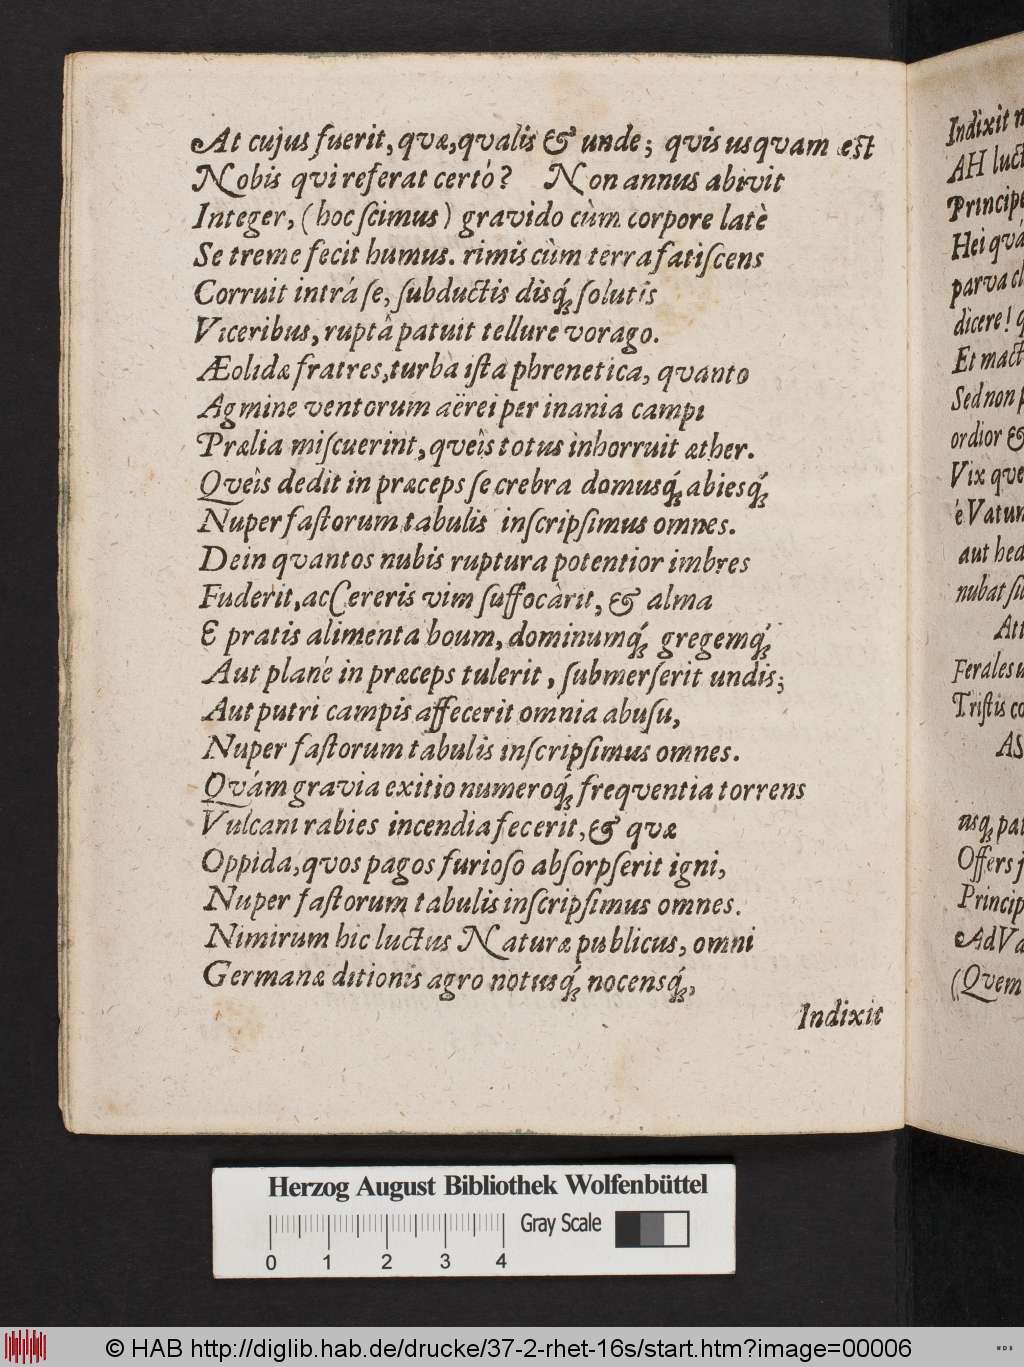 At cujus fuerit, qvæ, qvalis & unde; qvis usqvam est
Nobis qvi referat certò? Non annus abivit
Integer, (hoc ſcimus) gravido cùm corpore latè
Se treme fecit humus. rimis cùm terra fatiſcens
Corruit intrá ſe, ſubductis disq́ ſolutis
Viceribus, ruptâ patuit tellure vorago.
Æolidæ fratres, turba iſta phrenetica, qvanto
Agmine ventorum aërei per inania campi
Prælia miſcuerint, qveîs totus inhorruit æther.
Qveîs dedit in præceps ſe crebra domusq́ꝫ abiesq́ꝫ
Nuper faſtorum tabulis inſcripſimus omnes.
Dein qvantos nubis ruptura potentior imbres
Fuderit, ac Cereris vim ſuffocârit, & alma
E pratis alimenta boum, dominumq́ꝫ gregemq́ꝫ
Aut plané in præceps tulerit, ſubmerſerit undis;
Aut putri campis affecerit omnia abuſu,
Nuper faſtorum tabulis inſcripſimus omnes.
Qvám gravia exitio numeroq́ꝫ freqventia torrens
Vulcani rabies incendia fecerit, & qvæ
Oppida, qvos pagos furioſo abſorpſerit igni,
Nuper faſtorum tabulis inſcripſimus omnes.
Nimirum hic luctus Naturæ publicus, omni
Germanæ ditionis agro notusq́ꝫ nocensq́ꝫ,
Indixit
Indixit
AH
Principe
Hei
parva
dicere!
Et
Sed non
ordior &
Vix
é
aut
nubat
Ferales
Triſtis
Offers
Princip
Ad
(Qvem
Herzog August Bibliothek Wolfenbüttel
Gray Scale
0 1 2 3 4
© HAB http://diglib.hab.de/drucke/37-2-rhet-16s/start.htm?image=00006